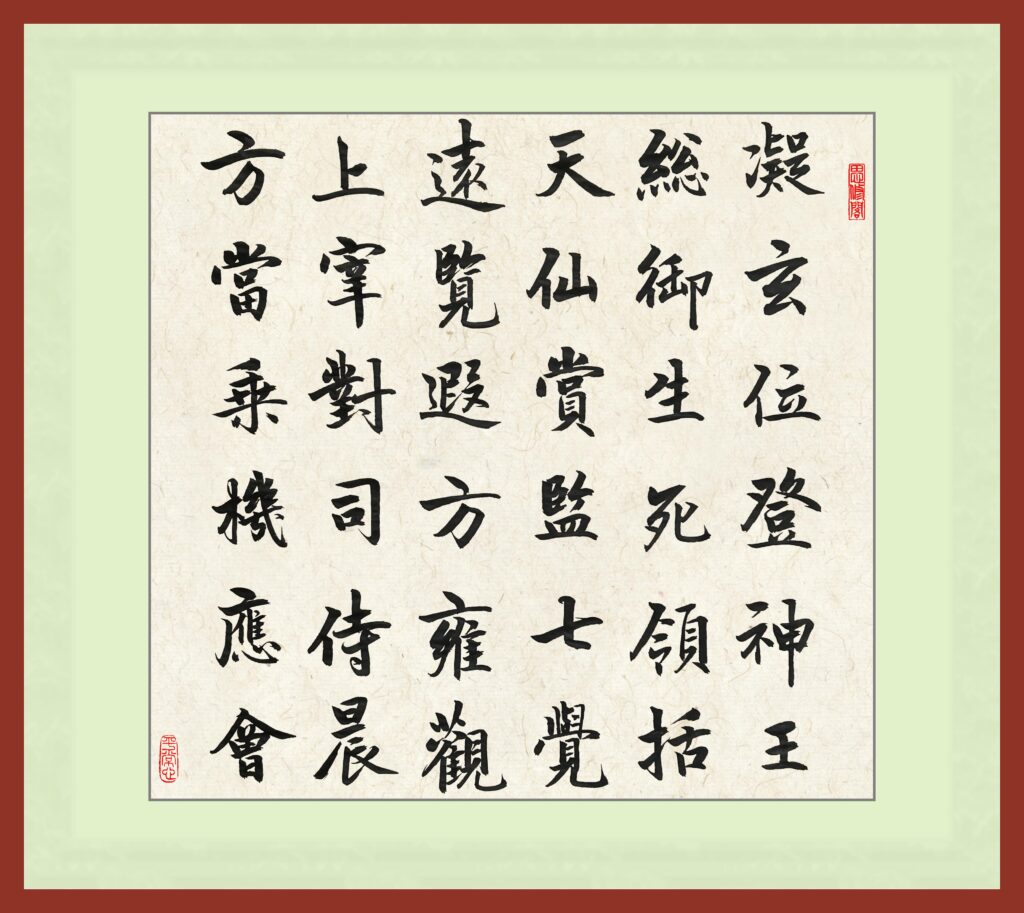 凝玄位登神王
總御生死領括
天仙賞監七覺
遠覽遐方雍觀
上宰對司侍晨
方當乘機應會
平常心